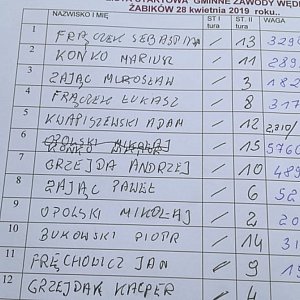 STARTOWA GMINNE ZAWODY WĘD
ŻABIKÓW 28 kwietnia 2019 roku..
NAZWISKO I IMIĘ ST I tura ST. II tura WAGA
1 FRĄCZEK SEBASTIAN / 13 329
2 KOŃKO MARIUSZ / 11 289
3 ZAJĄC MIROSŁAW / 3 182
4 FRĄCZEK ŁUKASZ / 8 317
5 ADAM / 12 2,210/
6 OPOLSKI MIKOŁAJ KONKO / 15 5760
7 GRZEJDA ANDRZEJ / 10 489
8 ZAJĄC PAWEŁ / 6 52
9 OPOLSKI MIKOŁAJ / 2 20
10 BUKOWSKI PIOTR / 14 31
11 FRĘCHOWICZ JAN / 9 15
12 GRZEJDAK KACPER / 4